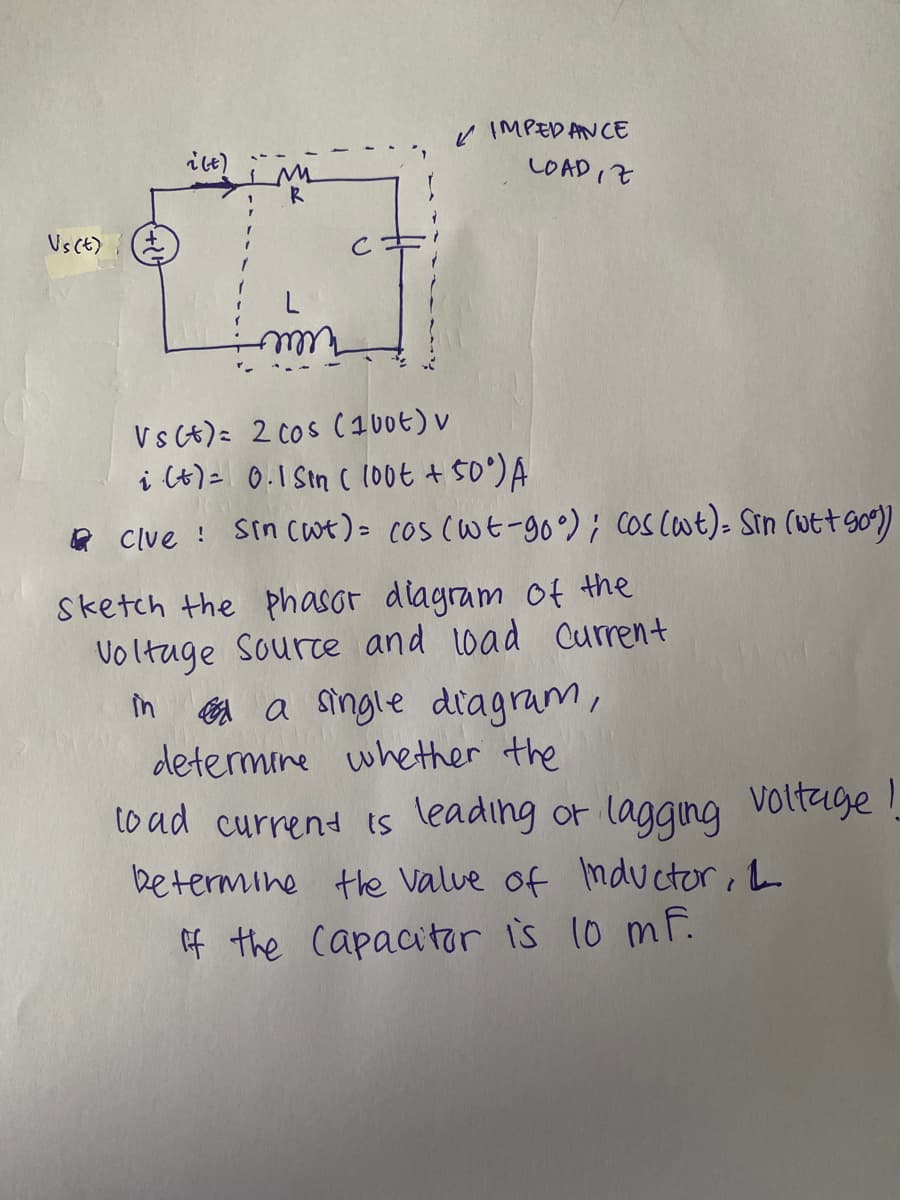 IMPEDANCE
LOAD, Z
i(t)
R
Vs(t)
+
C
L
Vs(t) = 2 cos (100t) V
i (t) = 0.1 Sin ( 100t + 50°) A
Clue ! Sin (wt) = cos (wt-90°) ; Cos (wt) = Sin (wt+90°))
Sketch the phasor diagram of the
Voltage Source and load Current
in a single diagram,
determine whether the
load current is leading or lagging Voltage !
Determine the Value of Inductor, L
If the Capacitor is 10 mF.